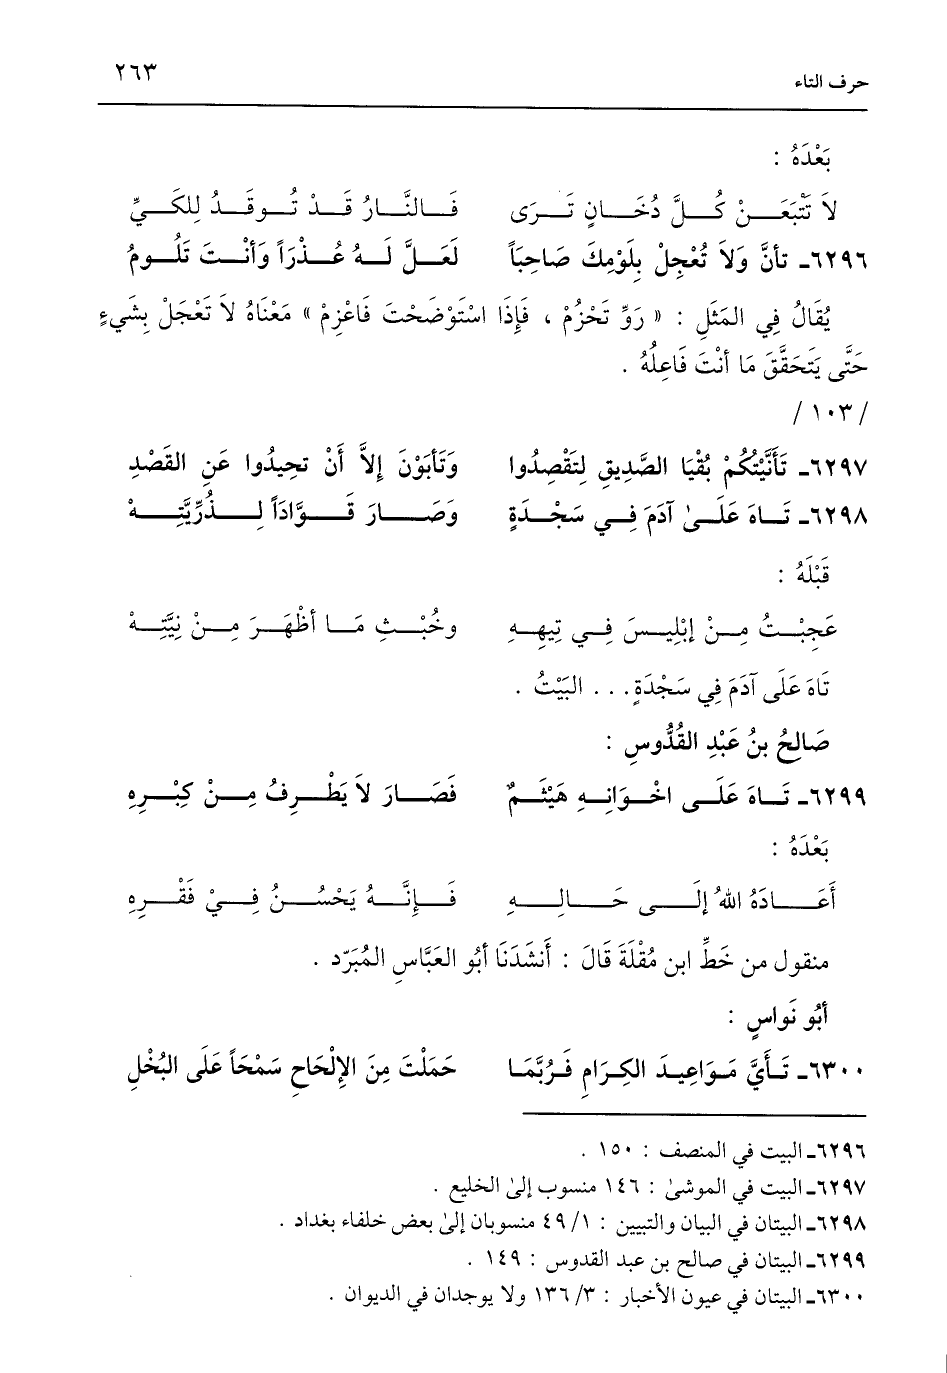 حرف التاء ٢٦٣
بَعْدَهُ :
لاَ تَتْبَعَنْ كُلَّ دُخَانٍ تَرَى فَالنَّارُ قَدْ تُوقَدُ لِلكَيِّ
٦٢٩٦ـ تأنَّ وَلاَ تُعْجِلْ بِلَومِكَ صَاحِبَاً لَعَلَّ لَهُ عُذْرَاً وَأنْتَ تَلُومُ
يُقَالُ فِي المَثَلِ : « رَوِّ تَحْزُمْ ، فَإِذَا اسْتَوْضَحْتَ فَاعْزِمْ » مَعْنَاهُ لاَ تَعْجَلْ بِشَيءٍ
حَتَّى يَتَحَقَّقَ مَا أنْتَ فَاعِلُهُ .
/١٠٣/
٦٢٩٧ـ تَأَنَّيْتُكُمْ بُقْيَا الصَّدِيقِ لِتَقْصِدُوا وَتَأبَوْنَ إِلاَّ أَنْ تحِيدُوا عَنِ القَصْدِ
٦٢٩٨ـ تَاهَ عَلَىٰ آدَمَ فِي سَجْدَةٍ وَصَارَ قَوَّادَاً لِذُرِّيَّتِهْ
قَبْلَهُ :
عَجِبْتُ مِنْ إبْلِيسَ فِي تِيهِهِ وخُبْثِ مَا أظْهَرَ مِنْ نِيَّتِهْ
تَاهَ عَلَى آدَمَ فِي سَجْدَةٍ . . . البَيْتُ .
صَالِحُ بنُ عَبْدِ القُدُّوسِ :
٦٢٩٩ـ تَاهَ عَلَى اخْوَانِهِ هَيْثَمٌ فَصَارَ لاَ يَطْرِفُ مِنْ كِبْرِهِ
بَعْدَهُ :
أَعَادَهُ اللهُ إلَى حَالِهِ فَإنَّهُ يَحْسُنُ فِيْ فَقْرِهِ
منقول من خَطِّ ابن مُقْلَةَ قَالَ : أَنشَدَنَا أبُو العَبَّاسِ المُبَرّد .
أبُو نَواسٍ :
٦٣٠٠ـ تَأَيَّ مَوَاعِيدَ الكِرَامِ فَرُبَّمَا حَمَلْتَ مِنَ الإِلْحَاحِ سَمْحَاً عَلَى البُخْلِ
٦٢٩٦ـ البيت في المنصف : ١٥٠ .
٦٢٩٧ـ البيت في الموشىٰ : ١٤٦ منسوب إلىٰ الخليع .
٦٢٩٨ـ البيتان في البيان والتبيين : ٤٩/١ منسوبان إلىٰ بعض خلفاء بغداد .
٦٢٩٩ـ البيتان في صالح بن عبد القدوس : ١٤٩ .
٦٣٠٠ـ البيتان في عيون الأخبار : ١٣٦/٣ ولا يوجدان في الديوان .